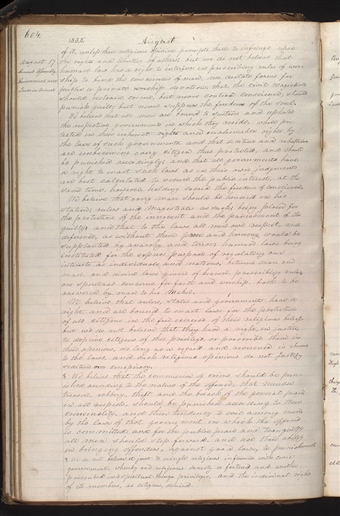 604
1835 August
of it, unless their religious opinion prompts them to infringe upon
the rights and liberties of others; but we do not believe that
August 17 human law has a right to interfere in prescribing rules of wor-
ship to bind the consciences of men, nor dictate forms for
public or private devotion; that the civil magistrate
should restrain crime, but never control conscience; should
punish guilt, but never suppress the freedom of the soul.
We believe that all men are bound to sustain and uphold
the respective governments in which they reside, while pro-
tected in their inherent and inalienable rights by
the laws of such governments and that sedition and rebellion
are unbecoming every citizen thus protected, and should
be punished accordingly; and that all governments have
a right to enact such laws as in their own judgments
are best calculated to secure the public interest, at the
same time, however, holding sacred the freedom of conscience
We believe that every man should be honored in his
station: rulers and Magistrates as such being placed for
the protection of the innocent and the punishment of the
guilty; and that to the laws all men owe respect and
deference, as without them peace and harmony would be
supplanted by anarchy and terror: human laws being
instituted for the express purpose of regulating our
interests as individuals and nations, between man and
man, and divine laws given of heaven, prescribing rules
on spiritual concerns for faith and worship, both to be
answered by man to his Maker.
We believe that rulers, states and governments have a
right, and are bound to enact laws for the protection
of all citizens in the free exercise of their religious belief
but we do not believe that they have a right, in justice
to deprive citizens of this privilege or proscribe them in
their opinions, so long as a regard and reverence is shown
to the laws and such religious opinions do not justify
sedition nor conspiracy.
We believe that the commission of crime should be pun-
ished according to the nature of the offence; that murder,
treason, robbery, theft and the breach of the general peace
in all respects should be punished according to their
criminality and their tendency to evil among men
by the laws of that government in which the offence
is committed: and for the public peace and tranquility
all men should step forward and use their ability
in bringing offenders, against good laws, to punishment
We do not believe it just to mingle religious influence with civil
government, whereby one religious society is fostered and another
proscribed in its spiritual privileges, and the individual rights
of its members, as citizens, denied.